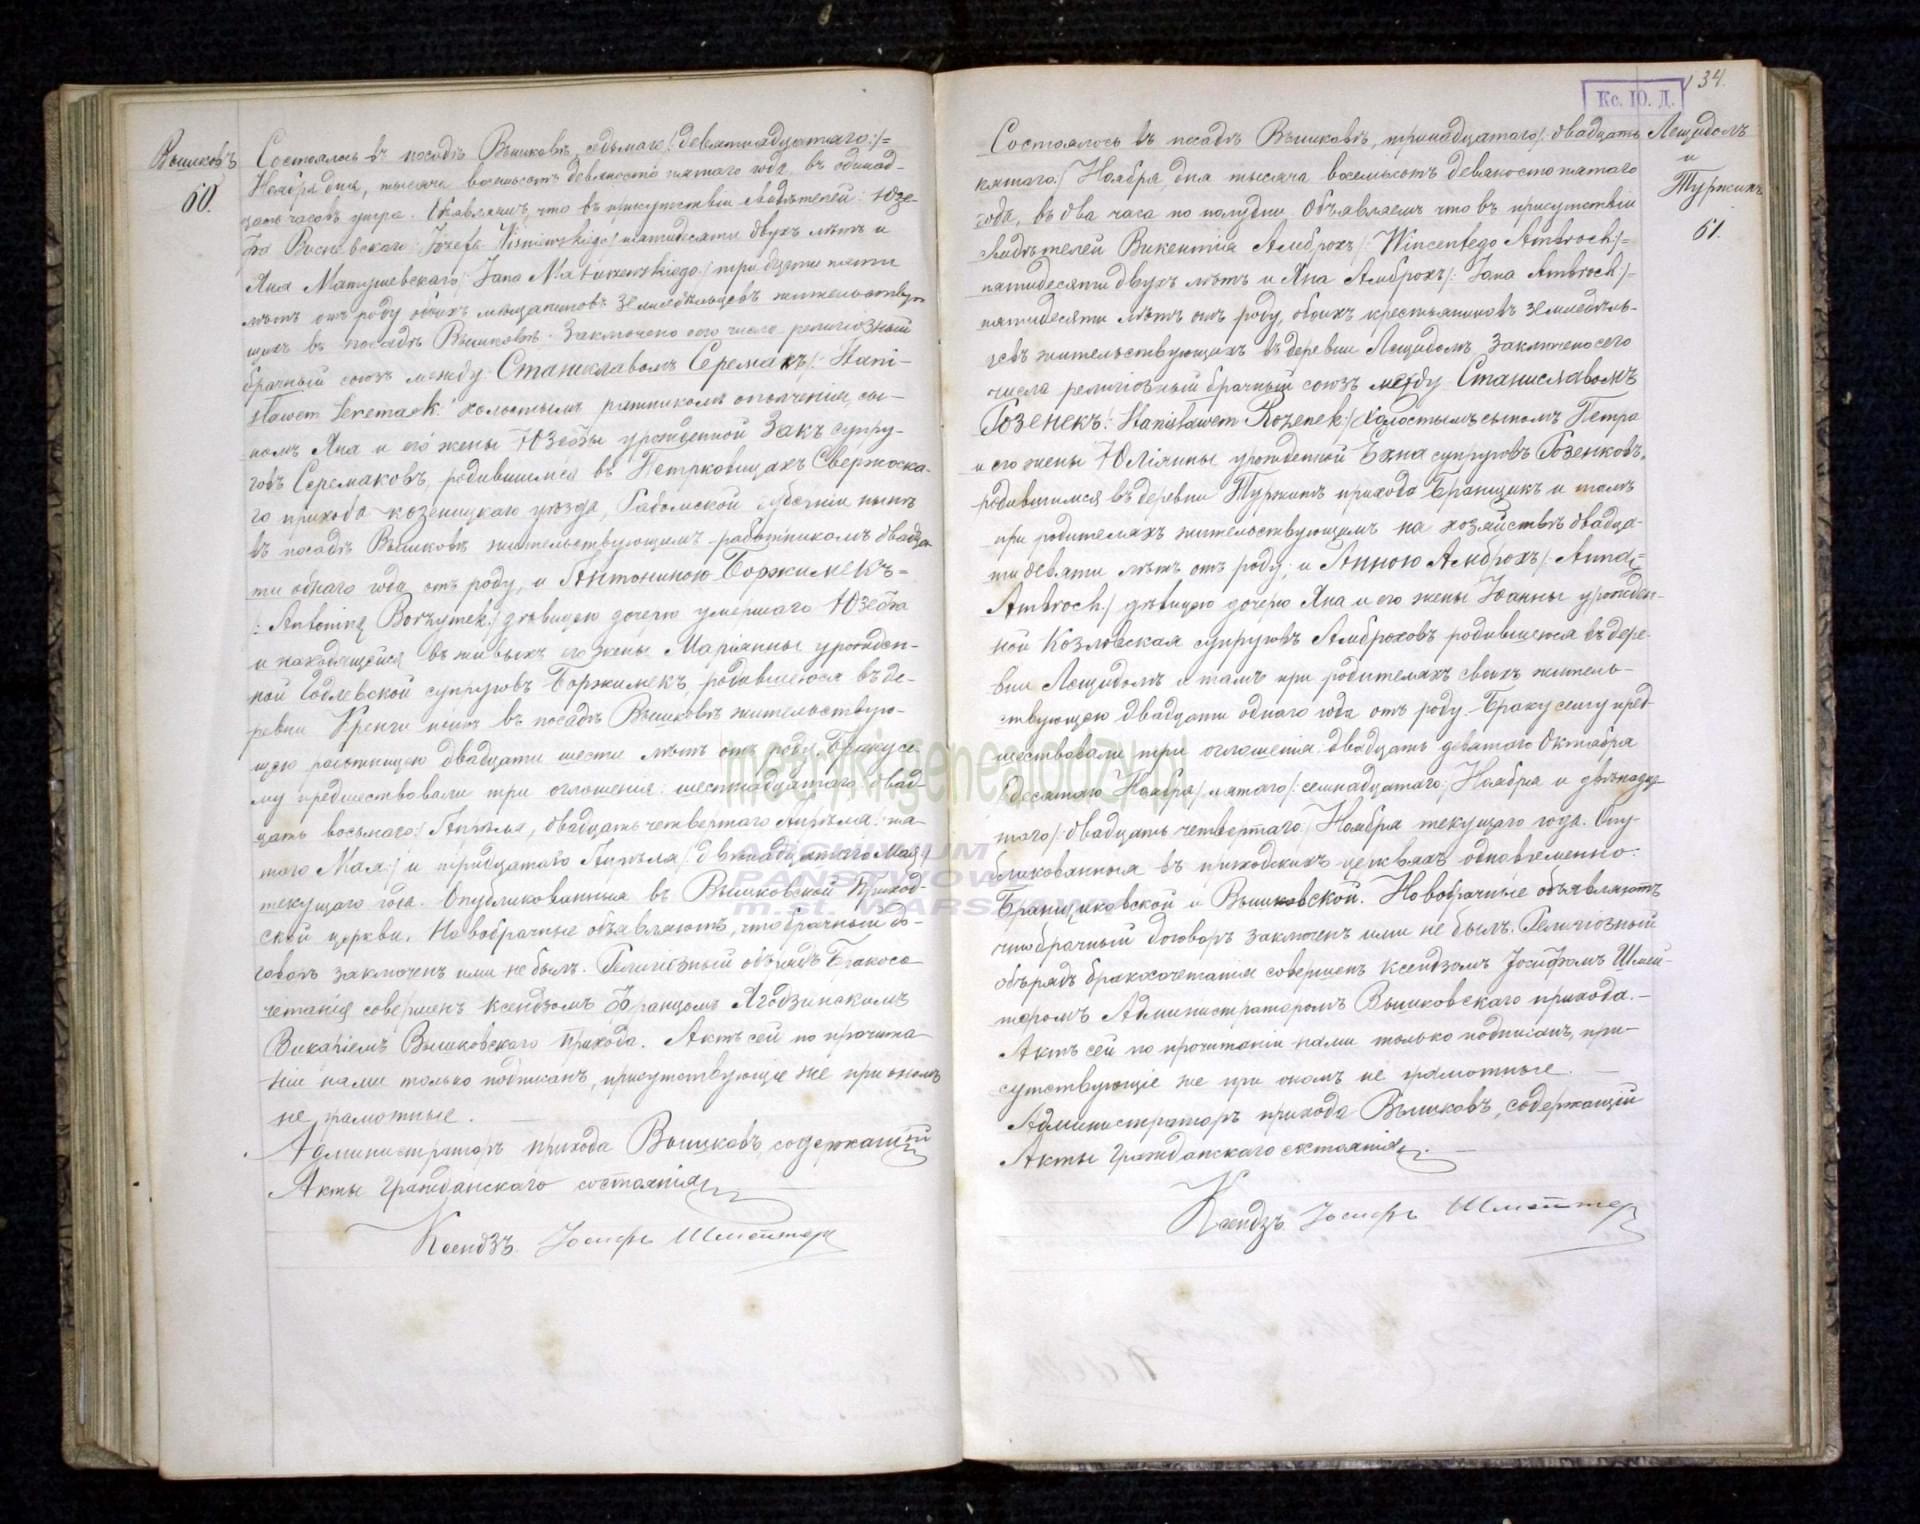 Вышковъ
60.
Состоялось въ посадѣ Вышковѣ, седьмаго /:девятнадцатаго:/=
Ноября дня, тысяча восемьсотъ девяносто пятаго года, въ одинад-
цать часовъ утра. Объявляемъ, что въ присутствіи свидѣтелей: Юзе-
фа Висневскаго /:Józefa Wiśniewskiego:/ пятидесяти двухъ лѣтъ и
Яна Матушевскаго /:Jana Matuszewskiego:/ тридцати пяти
лѣтъ отъ роду обоихъ мѣщаниновъ земледѣльцевъ жительствую-
щихъ въ посадѣ Вышковѣ. Заключено сего числа религіозный
брачный союзъ между: Станиславомъ Серемакъ /:Stani-
sławem Seremak:/ холостымъ ратникомъ ополченія, сы-
номъ Яна и его жены Юзефы урожденной Закъ супру-
говъ Серемаковъ, родившимся въ Петрковицахъ Свержоска-
го прихода козеницкаго уѣзда, Радомской губерніи нынѣ
въ посадѣ Вышковѣ жительствующимъ работникомъ двадца-
ти однаго года отъ роду, и Антониною Боржимекъ=
/:Antoniną Borzymek:/ дѣвицею дочерью умершаго Юзефа
и находящейся въ живыхъ его жены Маріянны урожден-
ной Годлевской супруговъ Боржимекъ, родившеюся въ де-
ревни Кренги нынѣ въ посадѣ Вышковѣ жительствую-
щею работницею двадцати шести лѣтъ отъ роду. Браку се-
му предшествовали три оглашенія: шестнадцатаго /:двад-
цать восьмаго:/ Апрѣля, двадцать четвертаго Апрѣля /:ше-
таго Мая:/ и тридцатаго Апрѣля /:двѣнадцатаго Мая:/
текущаго года. Опубликованныя въ Вышковской Приход-
ской церкви. Новобрачные объявляютъ, что брачный до-
говоръ заключенъ ими не былъ. Религіозный обрядъ Бракосо-
четанія совершенъ Ксендзомъ Францомъ Ягодзинскомъ
Викаріемъ Вышковскаго прихода. Актъ сей по прочита-
ніи нами только подписанъ, присутствующіе же при ономъ
не грамотные.
Администраторъ прихода Вышковъ, содержащій
Акты Гражданскаго состоянія
Ксендзъ Іосифъ Шмейтеръ
Кс. Ю. Д.
134.
Лещидолъ
и
Туржинъ
61.
Состоялось въ посадѣ Вышковѣ, тринадцатаго /:двадцать
пятаго:/ Ноября, дня тысяча восемьсотъ девяносто пятаго
года, въ два часа по полудни. Объявляемъ что въ присутствіи
свидѣтелей Викентія Амброхъ /:Wincentego Ambroch:/=
пятидесяти двухъ лѣтъ и Яна Амброхъ /:Jana Ambroch:/=
пятидесяти лѣтъ отъ роду, обоихъ крестьяниновъ земледѣль-
цевъ жительствующихъ въ деревни Лещидолъ. Заключено сего
числа религіозный брачный союзъ между Станиславомъ
Розенекъ /:Stanisławem Rozenek:/ холостымъ сыномъ Петра
и его жены Юліянны урожденной Бхна супруговъ Розенковъ,
родившимся въ деревни Туржинъ прихода Бранщикъ и тамъ
при родителяхъ жительствующимъ на хозяйствѣ двадца-
ти девяти лѣтъ отъ роду, и Анною Амброхъ /:Anną=
Ambroch:/ дѣвицею дочерью Яна и его жены Іоанны урожден-
ной Козловская супруговъ Амброховъ родившеюся въ дере-
вни Лещидолъ и тамъ при родителяхъ своихъ житель-
ствующею двадцати однаго года отъ роду. Браку сему пред-
шествовали три оглашенія: двадцать девятаго Октября
/:десятаго Ноября:/ пятаго /:семнадцатаго:/ Ноября и двѣнадца-
таго /:двадцать четвертаго:/ Ноября текущаго года. Опу-
бликованныя въ приходскихъ церквяхъ одновременно:
Бранщиковской и Вышковской. Новобрачные объявляютъ
что брачный договоръ заключенъ ими не былъ. Религіозный
обрядъ бракосочетанія совершенъ ксендзомъ Іосифомъ Шмей-
теромъ Администраторомъ Вышковскаго прихода.-
Актъ сей по прочитаніи нами только подписанъ, при-
сутствующіе же при ономъ не грамотные.
Администраторъ прихода Вышковъ, содержащій
Акты Гражданскаго состоянія.
Ксендзъ Іосифъ Шмейтеръ
metryki.genealodzy.pl
ARCHIWUM
PAŃSTWOWE
m.st. WARSZAWY